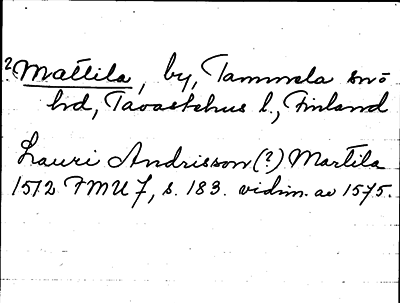 ? Mattila, by, Tammela sn o
hd, Tavastehus l., Finland
Lauri Andrisson (?) Martila
1512 FMU 7, s. 183. vidim. av 1575.